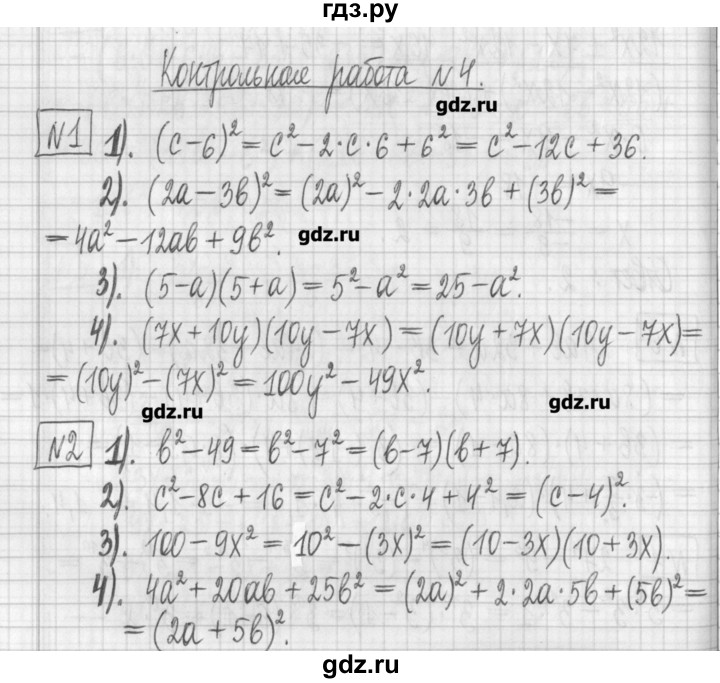 гдз.ру
Контрольная работа №4.
gdz.ru
№1 1). (c-6)² = c² - 2·c·6 + 6² = c² - 12c + 36.
2). (2a - 3b)² = (2a)² - 2·2a·3b + (3b)² =
= 4a² - 12ab + 9b². gdz.ru
3). (5-a)(5+a) = 5² - a² = 25 - a².
4). (7x + 10y)(10y - 7x) = (10y + 7x)(10y - 7x) =
= (10y)² - (7x)² = 100y² - 49x².
gdz.ru gdz.ru
№2 1). b² - 49 = b² - 7² = (b-7)(b+7).
2). c² - 8c + 16 = c² - 2·c·4 + 4² = (c-4)².
3). 100 - 9x² = 10² - (3x)² = (10-3x)(10+3x).
4). 4a² + 20ab + 25b² = (2a)² + 2·2a·5b + (5b)² =
= (2a + 5b)².
gdz.ru